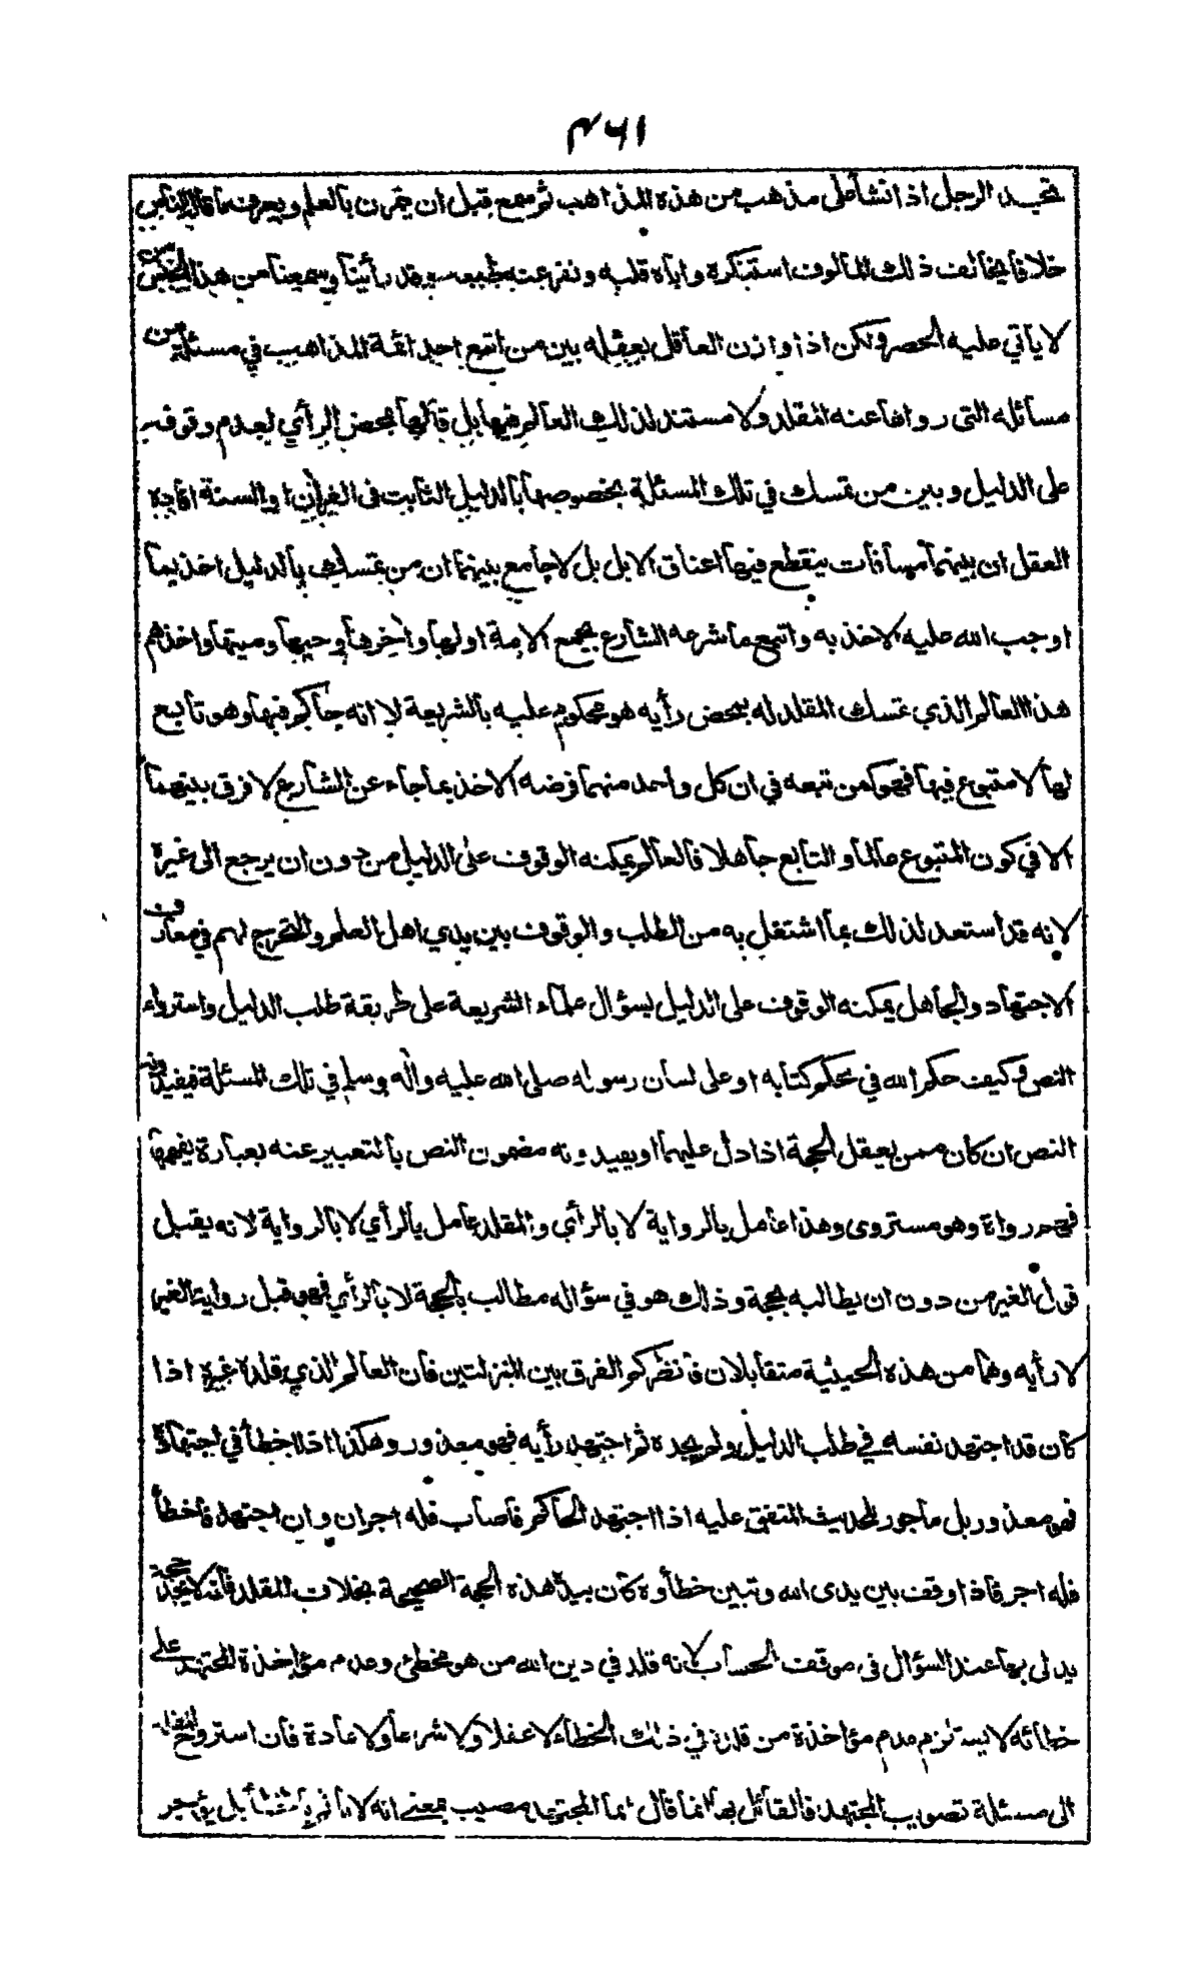 ٤٦١
فتجد الرجل اذا نشأ على مذهب من هذه المذاهب ثم سمع قبل ان يتمرن بالعلم ويعرف ما قاله الناس
خلافا يخالف ذلك المألوف استنكره واباه قلبه ونفر عنه طبعه وقد رأينا وسمعنا من هذا الجنس من
لا يأتي عليه الحصر ولكن اذا وازن العاقل بعقله بين من اتبع احد ائمة المذاهب في مسئلة من
مسائله التى رواها عنه المقلد ولا مستند لذلك العالم فيها بل قالها بمحض الرأي لعدم وقوفه
على الدليل وبين من تمسك في تلك المسئلة بخصوصها بالدليل الثابت فى القرآن او السنة افاده
العقل ان بينهما مسافات ينقطع فيها اعناق الابل بل لا جامع بينهما ان من تمسك بالدليل اخذ بما
اوجب الله عليه الاخذ به واتبع ما شرعه الشارع بجميع الامة اولها واخرها وحيها وميتها واخذهم
هذا العالم الذي تمسك المقلد له بمحض رأيه هو محكوم عليه بالشريعة لا انه حاكم فيها وهو تابع
لها لا متبوع فيها فهو كمن تبعه في ان كل واحد منهما فرضه الاخذ بما جاء عن الشارع لا فرق بينهما
الا في كون المتبوع عالما والتابع جاهلا فالعالم يمكنه الوقوف على الدليل من دون ان يرجع الى غيره
لانه قد استعد لذلك بما اشتغل به من الطلب والوقوف بين يدي اهل العلم والتخرج لهم في معارف
الاجتهاد والجاهل يمكنه الوقوف على الدليل بسؤال علماء الشريعة على طريقة طلب الدليل واسترواء
النص وكيف حكم الله في محكم كتابه او على لسان رسوله صلى الله عليه واله وسلم في تلك المسئلة فيفيدونه
النص ان كان ممن يعقل الحجة اذا دل عليها او يفيدونه مضمون النص بالتعبير عنه بعبارة يفهمها
فهم رواة وهو مستروى وهذا عامل بالرواية لا بالرأي والمقلد عامل بالرأي لا بالرواية لانه يقبل
قول الغير من دون ان يطالبه بحجة وذلك هو في سؤاله مطالب بالحجة لا بالرأي فهو قبل رواية الغير
لا رأيه وهما من هذه الحيثية متقابلان فانظر كم الفرق بين المنزلتين فان العالم الذي قلده غيره اذا
كان قد اجتهد نفسه في طلب الدليل ولم يجده ثم اجتهد رأيه فهو معذور وهكذا اذا اخطأ في اجتهاده
فهو معذور بل مأجور للحديث المتفق عليه اذا اجتهد الحاكم فاصاب فله اجران وان اجتهد فاخطأ
فله اجر فاذا وقف بين يدى الله وتبين خطأوه كان بيده هذه الحجة الصحيحة بخلاف المقلد فانه لا يجد حجة
يدلى بها عند السؤال فى موقف الحساب لانه قلد في دين الله من هو مخطئ وعدم مؤاخذة المجتهد على
خطائه لا يستلزم عدم مؤاخذة من قلده في ذلك الخطاء لا عقلا ولا شرعا ولا عادة فان استروح المقلد
الى مسئلة تصويب المجتهد فالقائل بها انما قال انما المجتهد مصيب بمعنى انه لا يأثم بالخطأ بل يؤجر